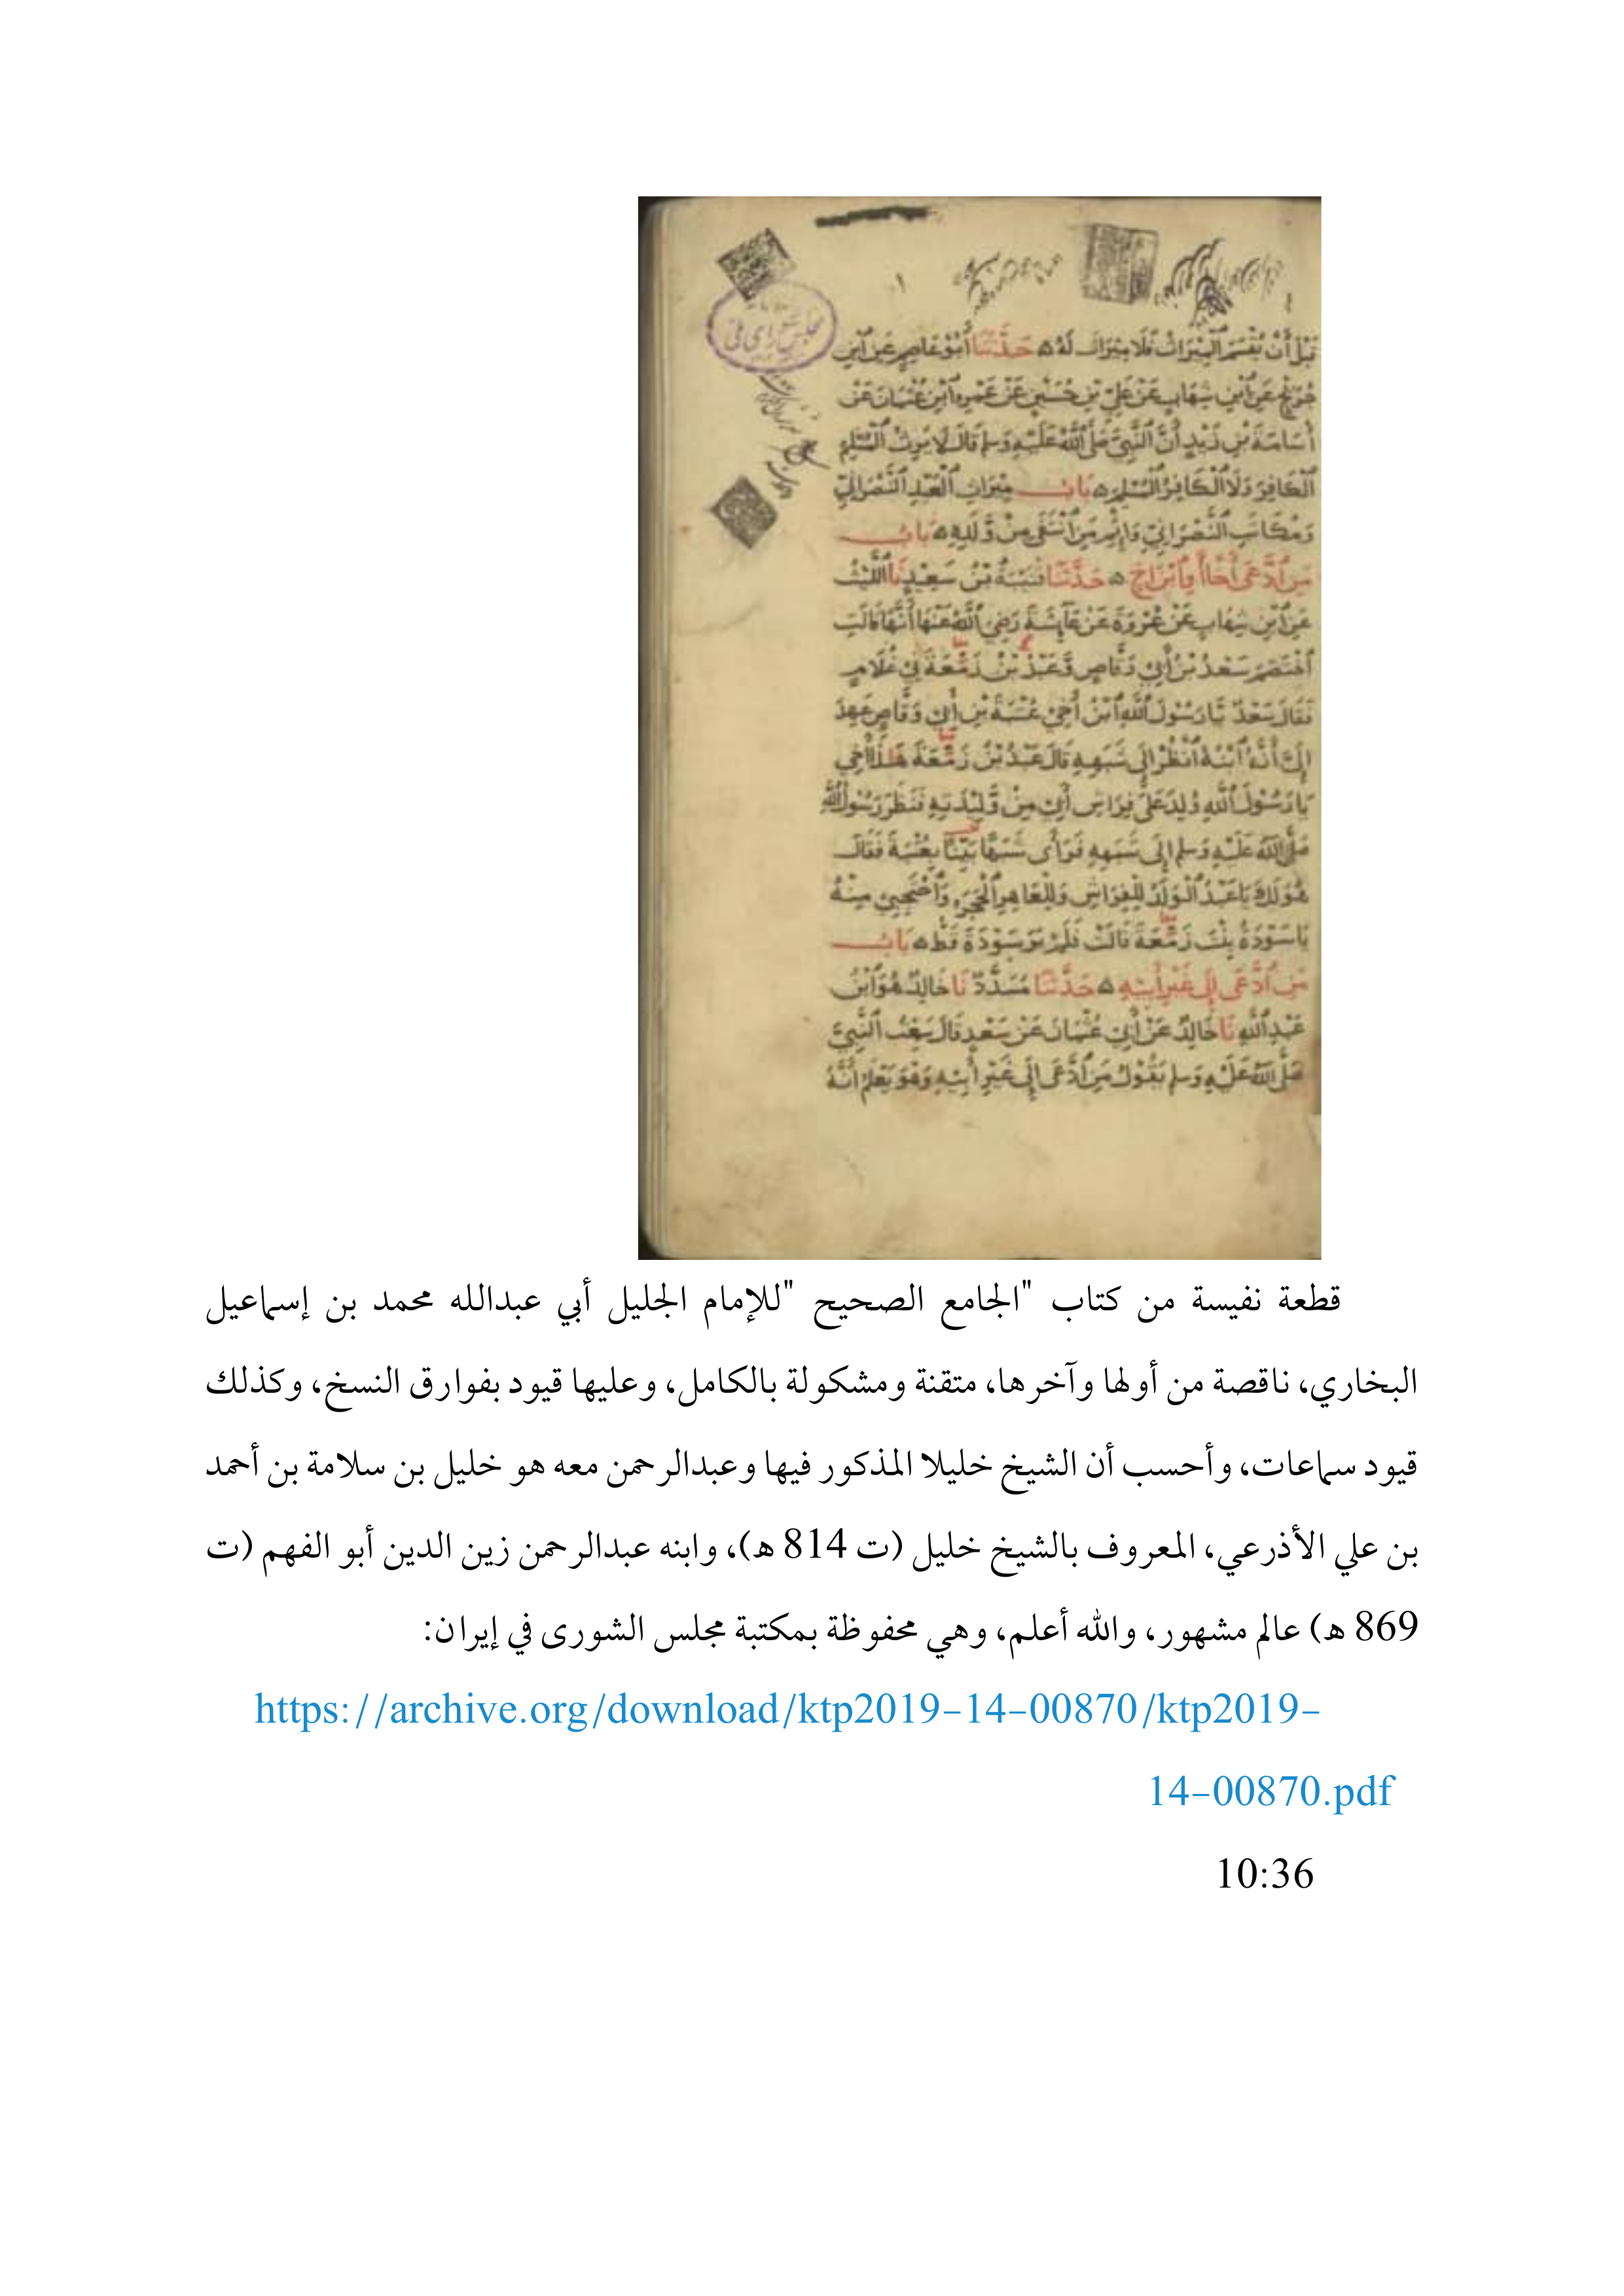 قبل أن يقسم الميراث فلا ميراث له ه حدثنا أبو عاصم عن ابن
جريج عن ابن شهاب عن علي بن حسين عن عمرو ابن عثمان عن
أسامة بن زيد أن النبي صلى الله عليه وسلم قال لا يرث المسلم
الكافر ولا الكافر المسلم ه باب ميراث العبد النصراني
ومكاتب النصراني وإثم من انتفى من ولده ه باب
من ادعى أخا أو ابن أخ ه حدثنا قتيبة بن سعيد نا الليث
عن ابن شهاب عن عروة عن عائشة رضي الله عنها أنها قالت
اختصم سعد بن أبي وقاص وعبد بن زمعة في غلام
فقال سعد يا رسول الله ابن أخي عتبة بن أبي وقاص عهد
إلي أنه ابنه انظر إلى شبهه قال عبد بن زمعة هذا أخي
يا رسول الله ولد على فراش أبي من وليدته فنظر رسول الله
صلى الله عليه وسلم إلى شبهه فرأى شبها بينا بعتبة فقال
هو لك يا عبد الولد للفراش وللعاهر الحجر واحتجبي منه
يا سودة بنت زمعة قالت فلم ير سودة قط ه باب
من ادعى إلى غير أبيه ه حدثنا مسدد نا خالد هو ابن
عبد الله نا خالد عن أبي عثمان عن سعد قال سمعت النبي
صلى الله عليه وسلم يقول من ادعى إلى غير أبيه وهو يعلم أنه
قطعة نفيسة من كتاب "الجامع الصحيح "للإمام الجليل أبي عبدالله محمد بن إسماعيل
البخاري، ناقصة من أولها وآخرها، متقنة ومشكولة بالكامل، وعليها قيود بفوارق النسخ، وكذلك
قيود سماعات، وأحسب أن الشيخ خليلا المذكور فيها وعبدالرحمن معه هو خليل بن سلامة بن أحمد
بن علي الأذرعي، المعروف بالشيخ خليل (ت 814 ه)، وابنه عبدالرحمن زين الدين أبو الفهم (ت
869 ه) عالم مشهور، والله أعلم، وهي محفوظة بمكتبة مجلس الشورى في إيران:
https://archive.org/download/ktp2019-14-00870/ktp2019-
14-00870.pdf
10:36